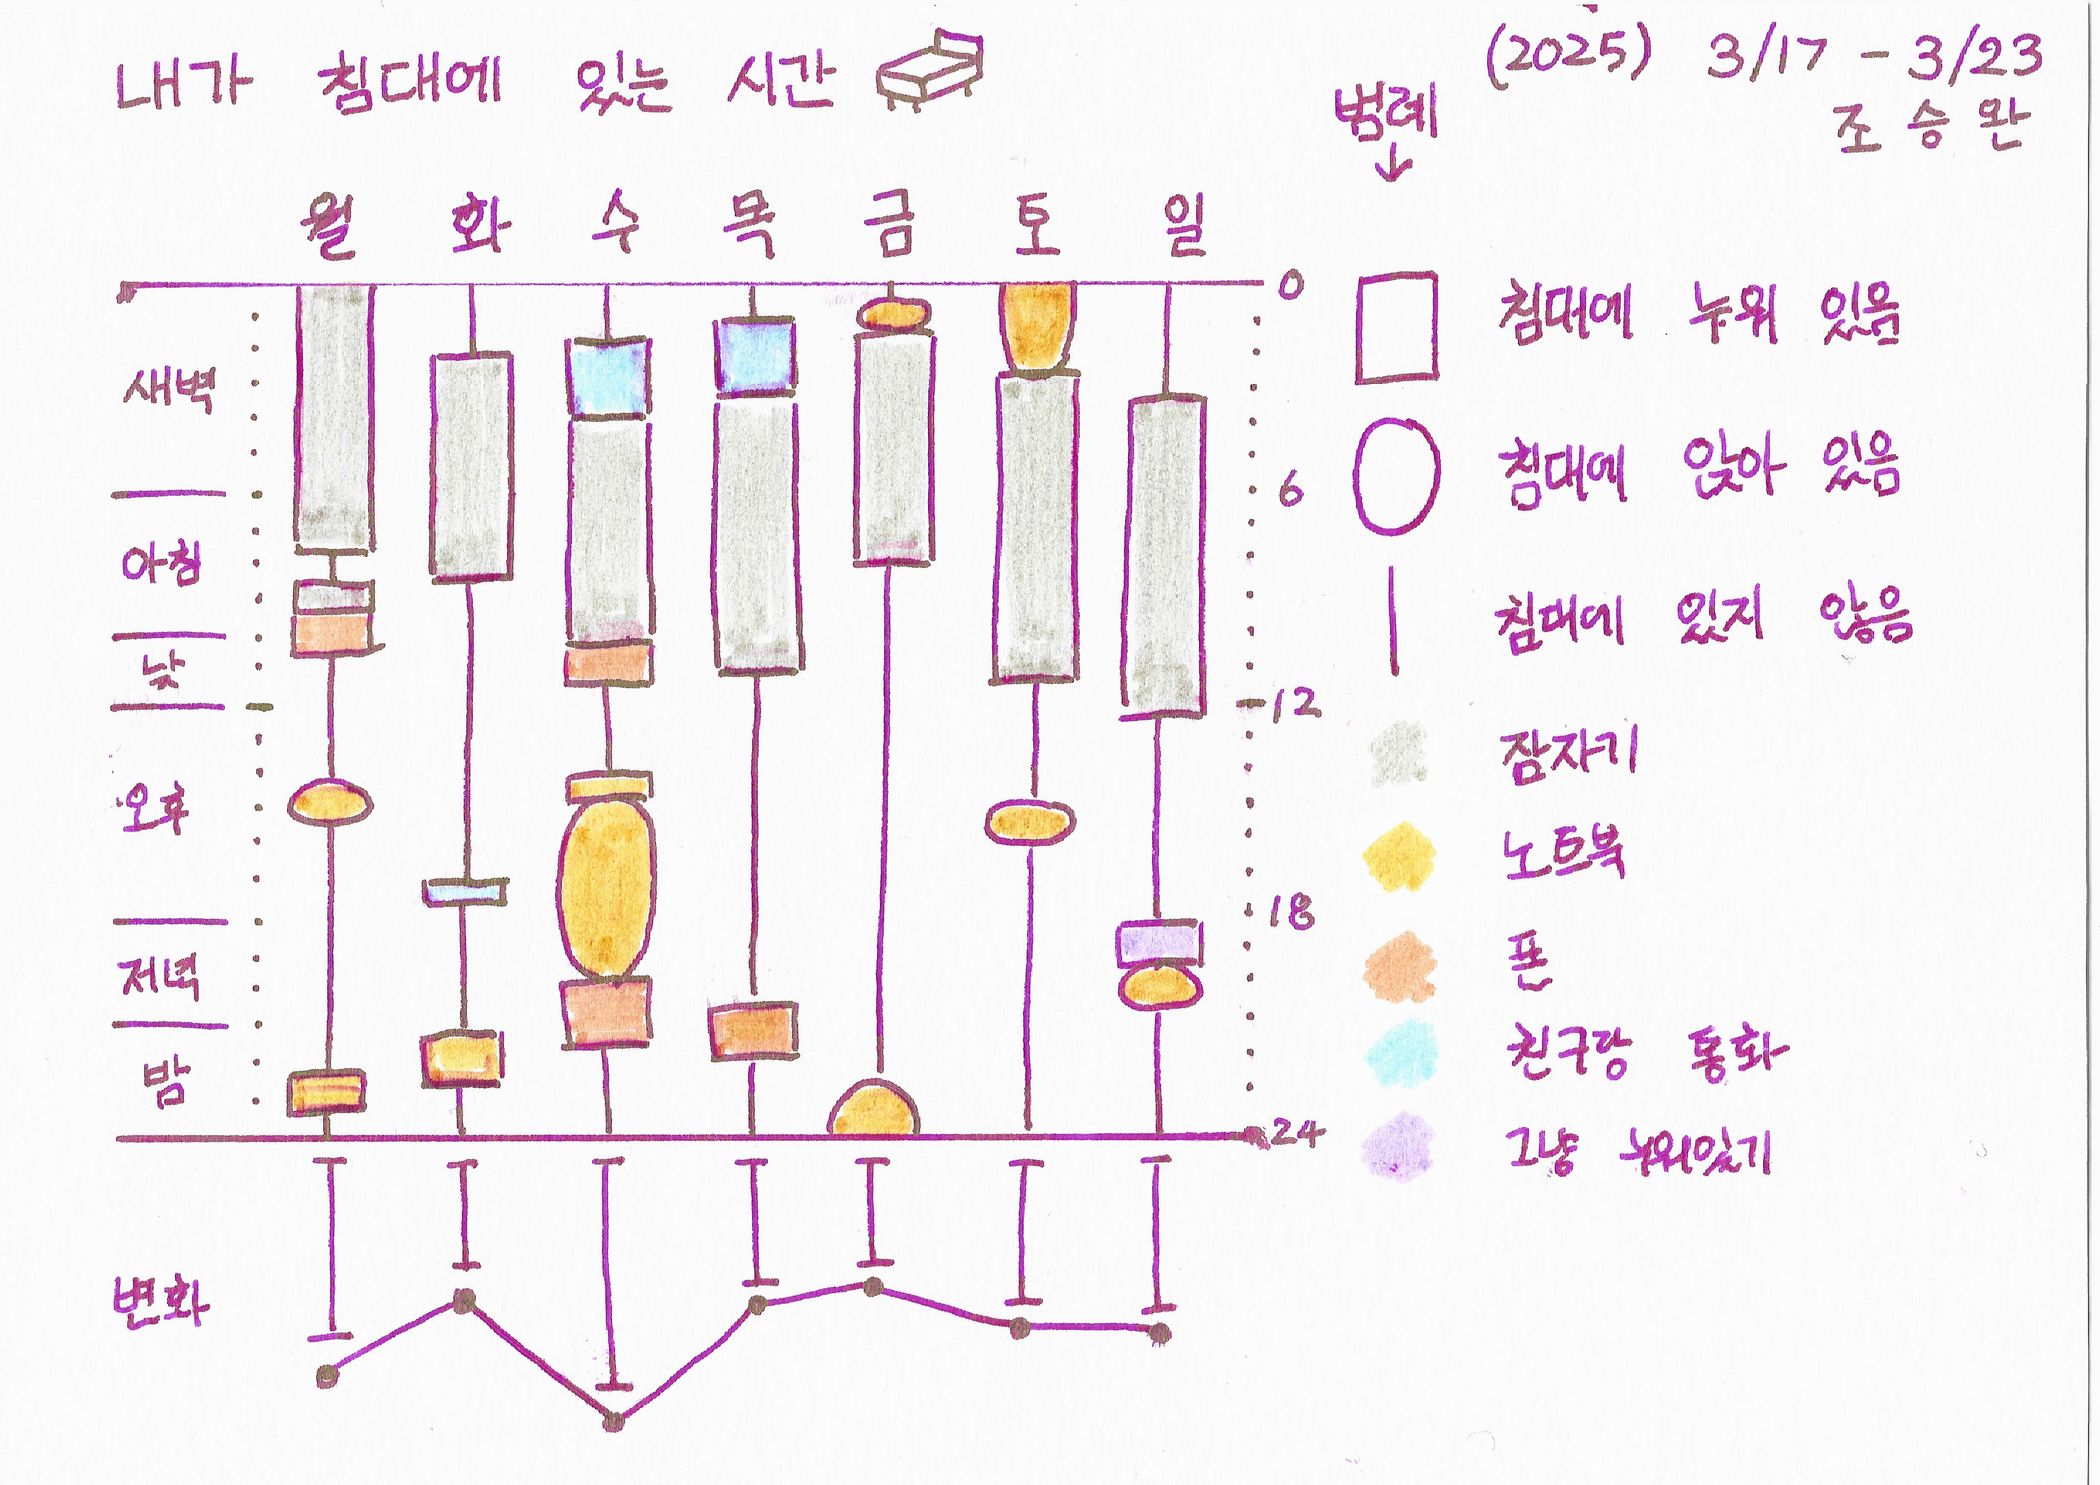 내가 침대에 있는 시간
(2025) 3/17 - 3/23
조승완
범례
↓
월 화 수 목 금 토 일
새벽
아침
낮
오후
저녁
밤
0
6
12
18
24
변화
침대에 누워 있음
침대에 앉아 있음
침대에 있지 않음
잠자기
노트북
폰
친구랑 통화
그냥 누워있기